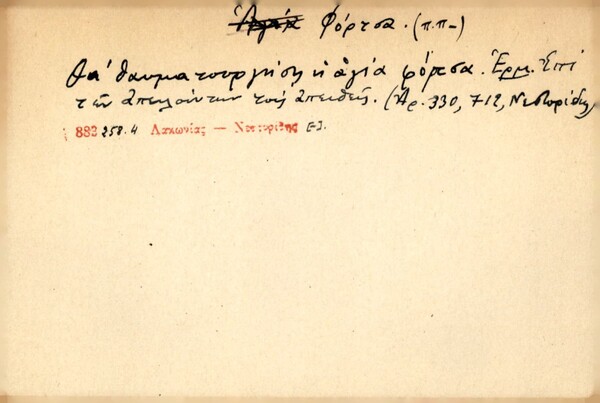 Φόρτσα. (π.π-)
Θα' θαυματουργήση ἡ ἁγία φόρτσα. Ἑρμ. Ἐπὶ
τῶν ἀπειλούντων τοὺς ἀπειθεῖς. (Ἀρ. 330, 712, Νεστορίδης)
883 258.4 Λακωνίας — Νεστορίδης